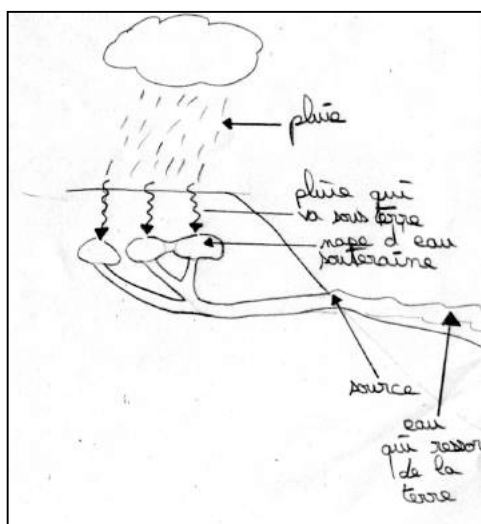 pluie
pluie qui
va sous terre
nape d'eau
souteraine
source
eau
qui ressor
de la
terre